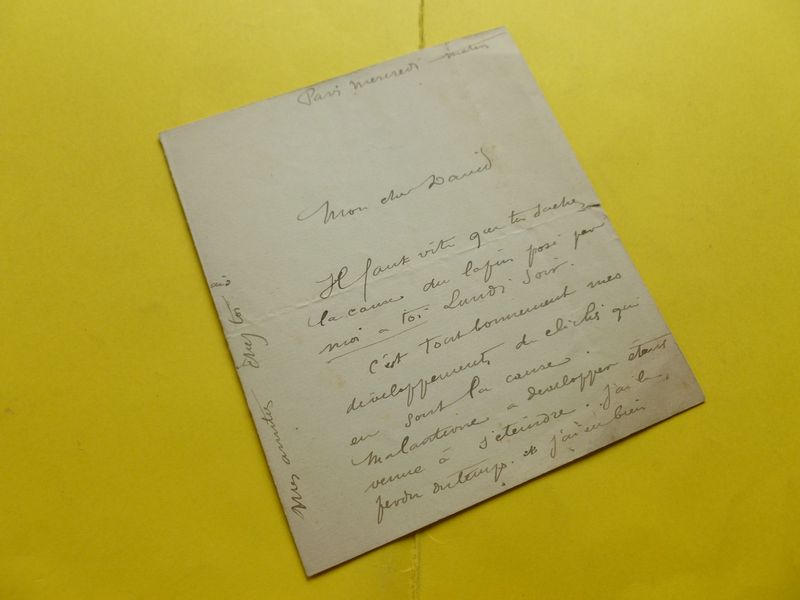 Paris mercredi matin
Mon cher David
Il faut vite que tu saches
la cause du lapin posé par
moi à toi Lundi Soir.
C'est tout bonnement mes
développements de clichés qui
en sont la cause.
Ma lanterne à développer étant
venue à s'éteindre. j'ai
perdu du temps. j'ai eu bien
Mes amitiés chez toi